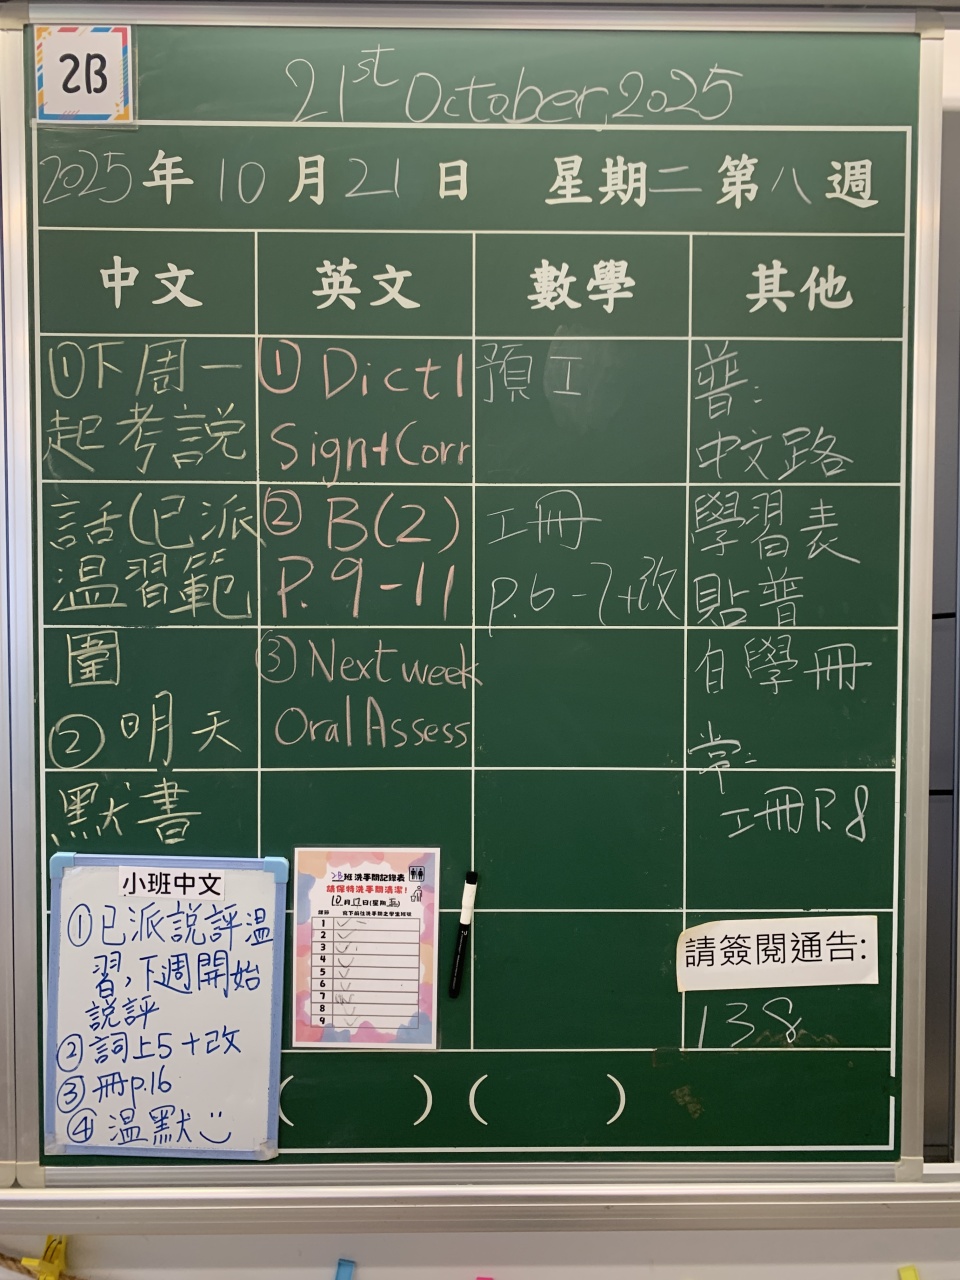 2B
21st October, 2025
2025年10月21日 星期二第八週
中文
①下周一
起考說
話(已派
温習範
圍
②明天
默書
英文
① Dict1
Sign+Corr
② B(2)
P.9-11
③ Next week
Oral Assess
數學
預工
工冊
p.6-7+改
其他
普:
中文路
學習表
貼普
自學冊
常:
工冊P.8
小班中文
①已派説評温
習,下週開始
説評
②詞上5+改
③冊p.16
④温默
2B班 洗手間記錄表
請保持洗手間清潔!
10月17日(星期五)
1
2
3
4
5
6
7
8
9
請簽閱通告:
138
( ) ( )